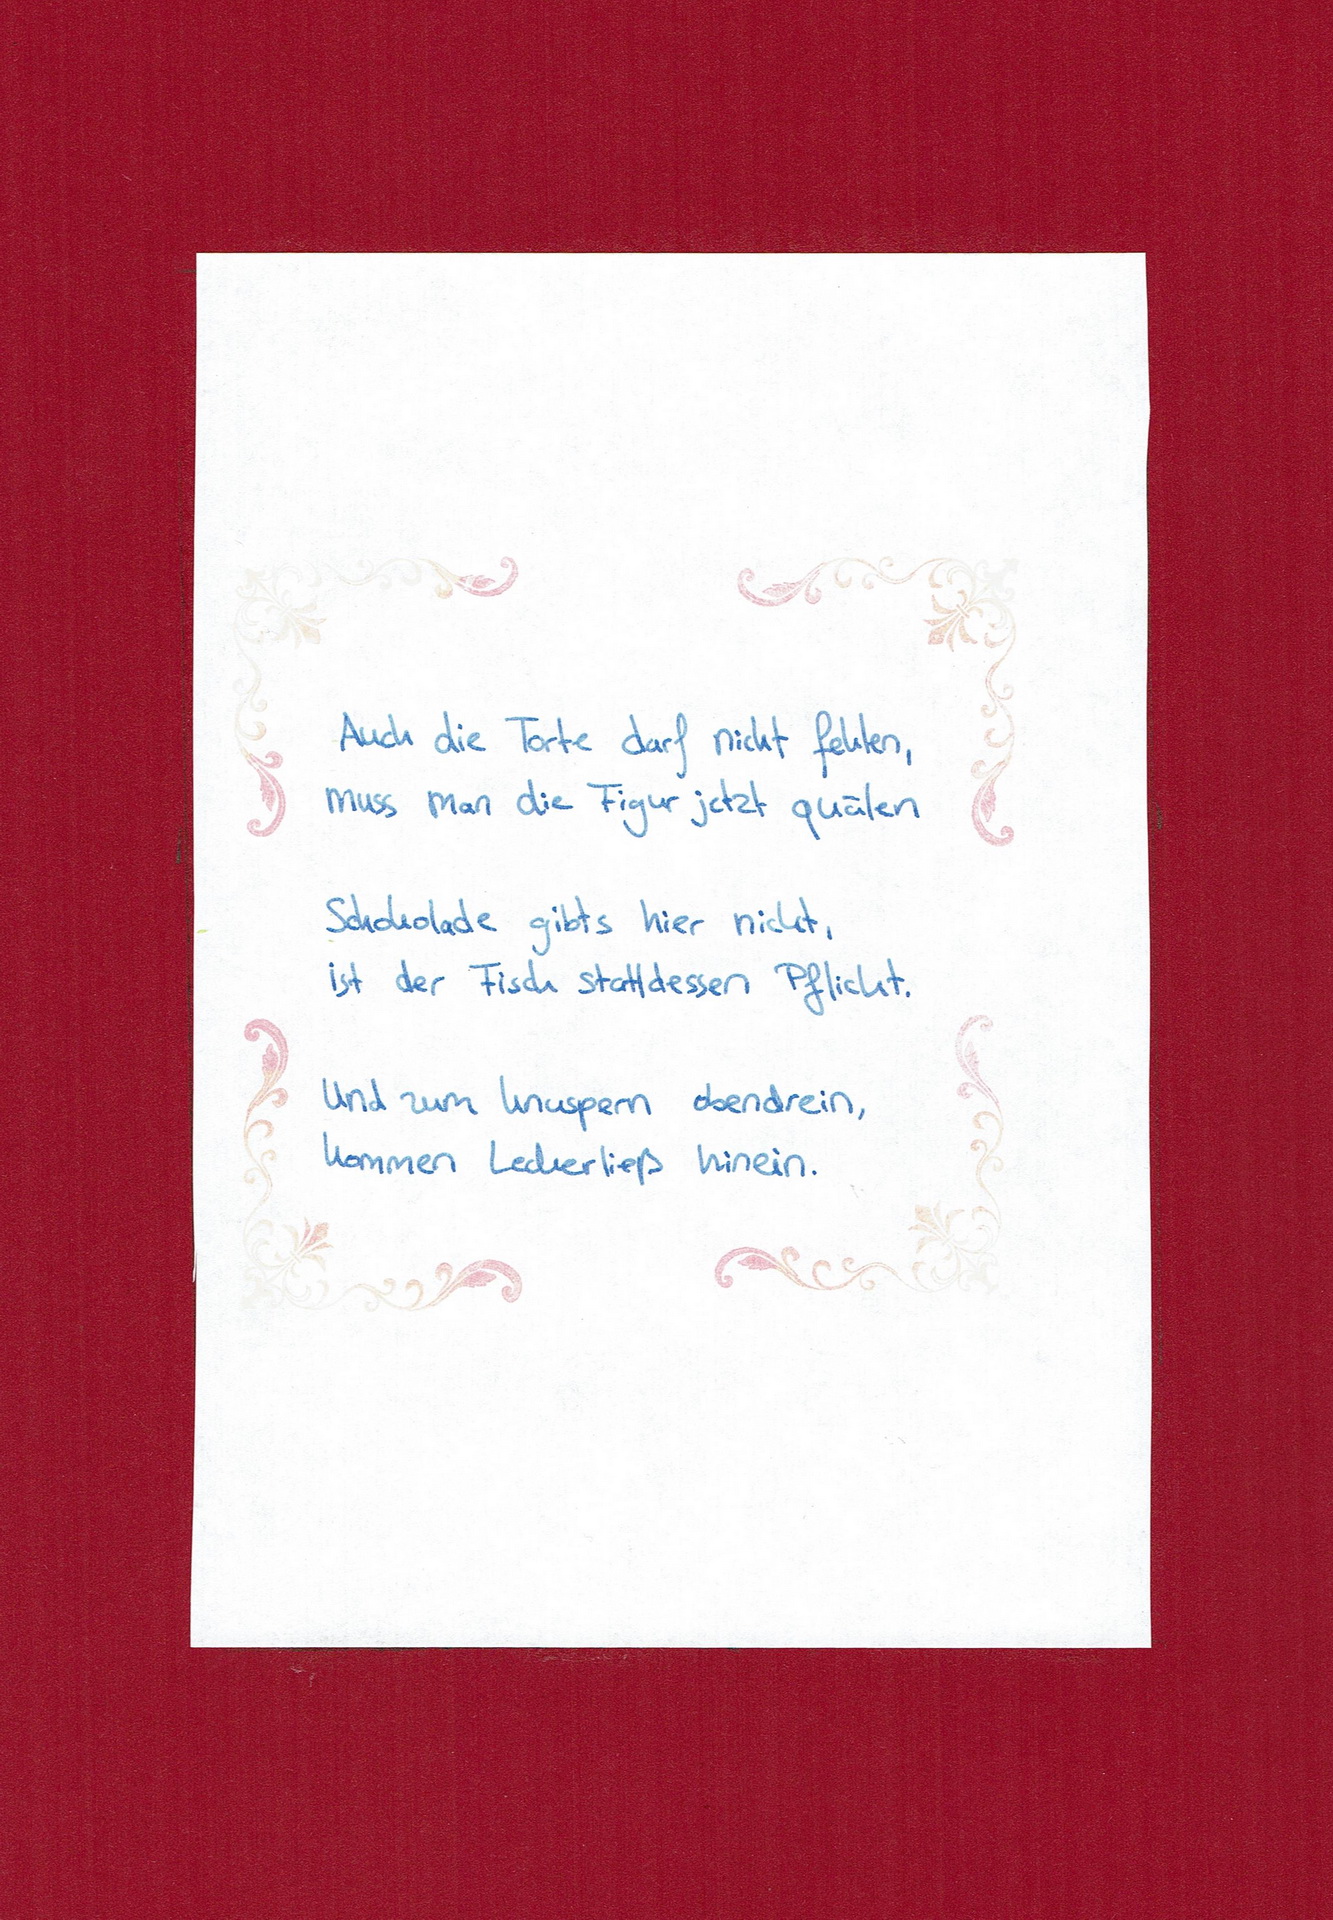 Auch die Torte darf nicht fehlen,
muss man die Figur jetzt quälen
Schokolade gibts hier nicht,
ist der Fisch stattdessen Pflicht.
Und zum knuspern obendrein,
kommen Leckerließ hinein.